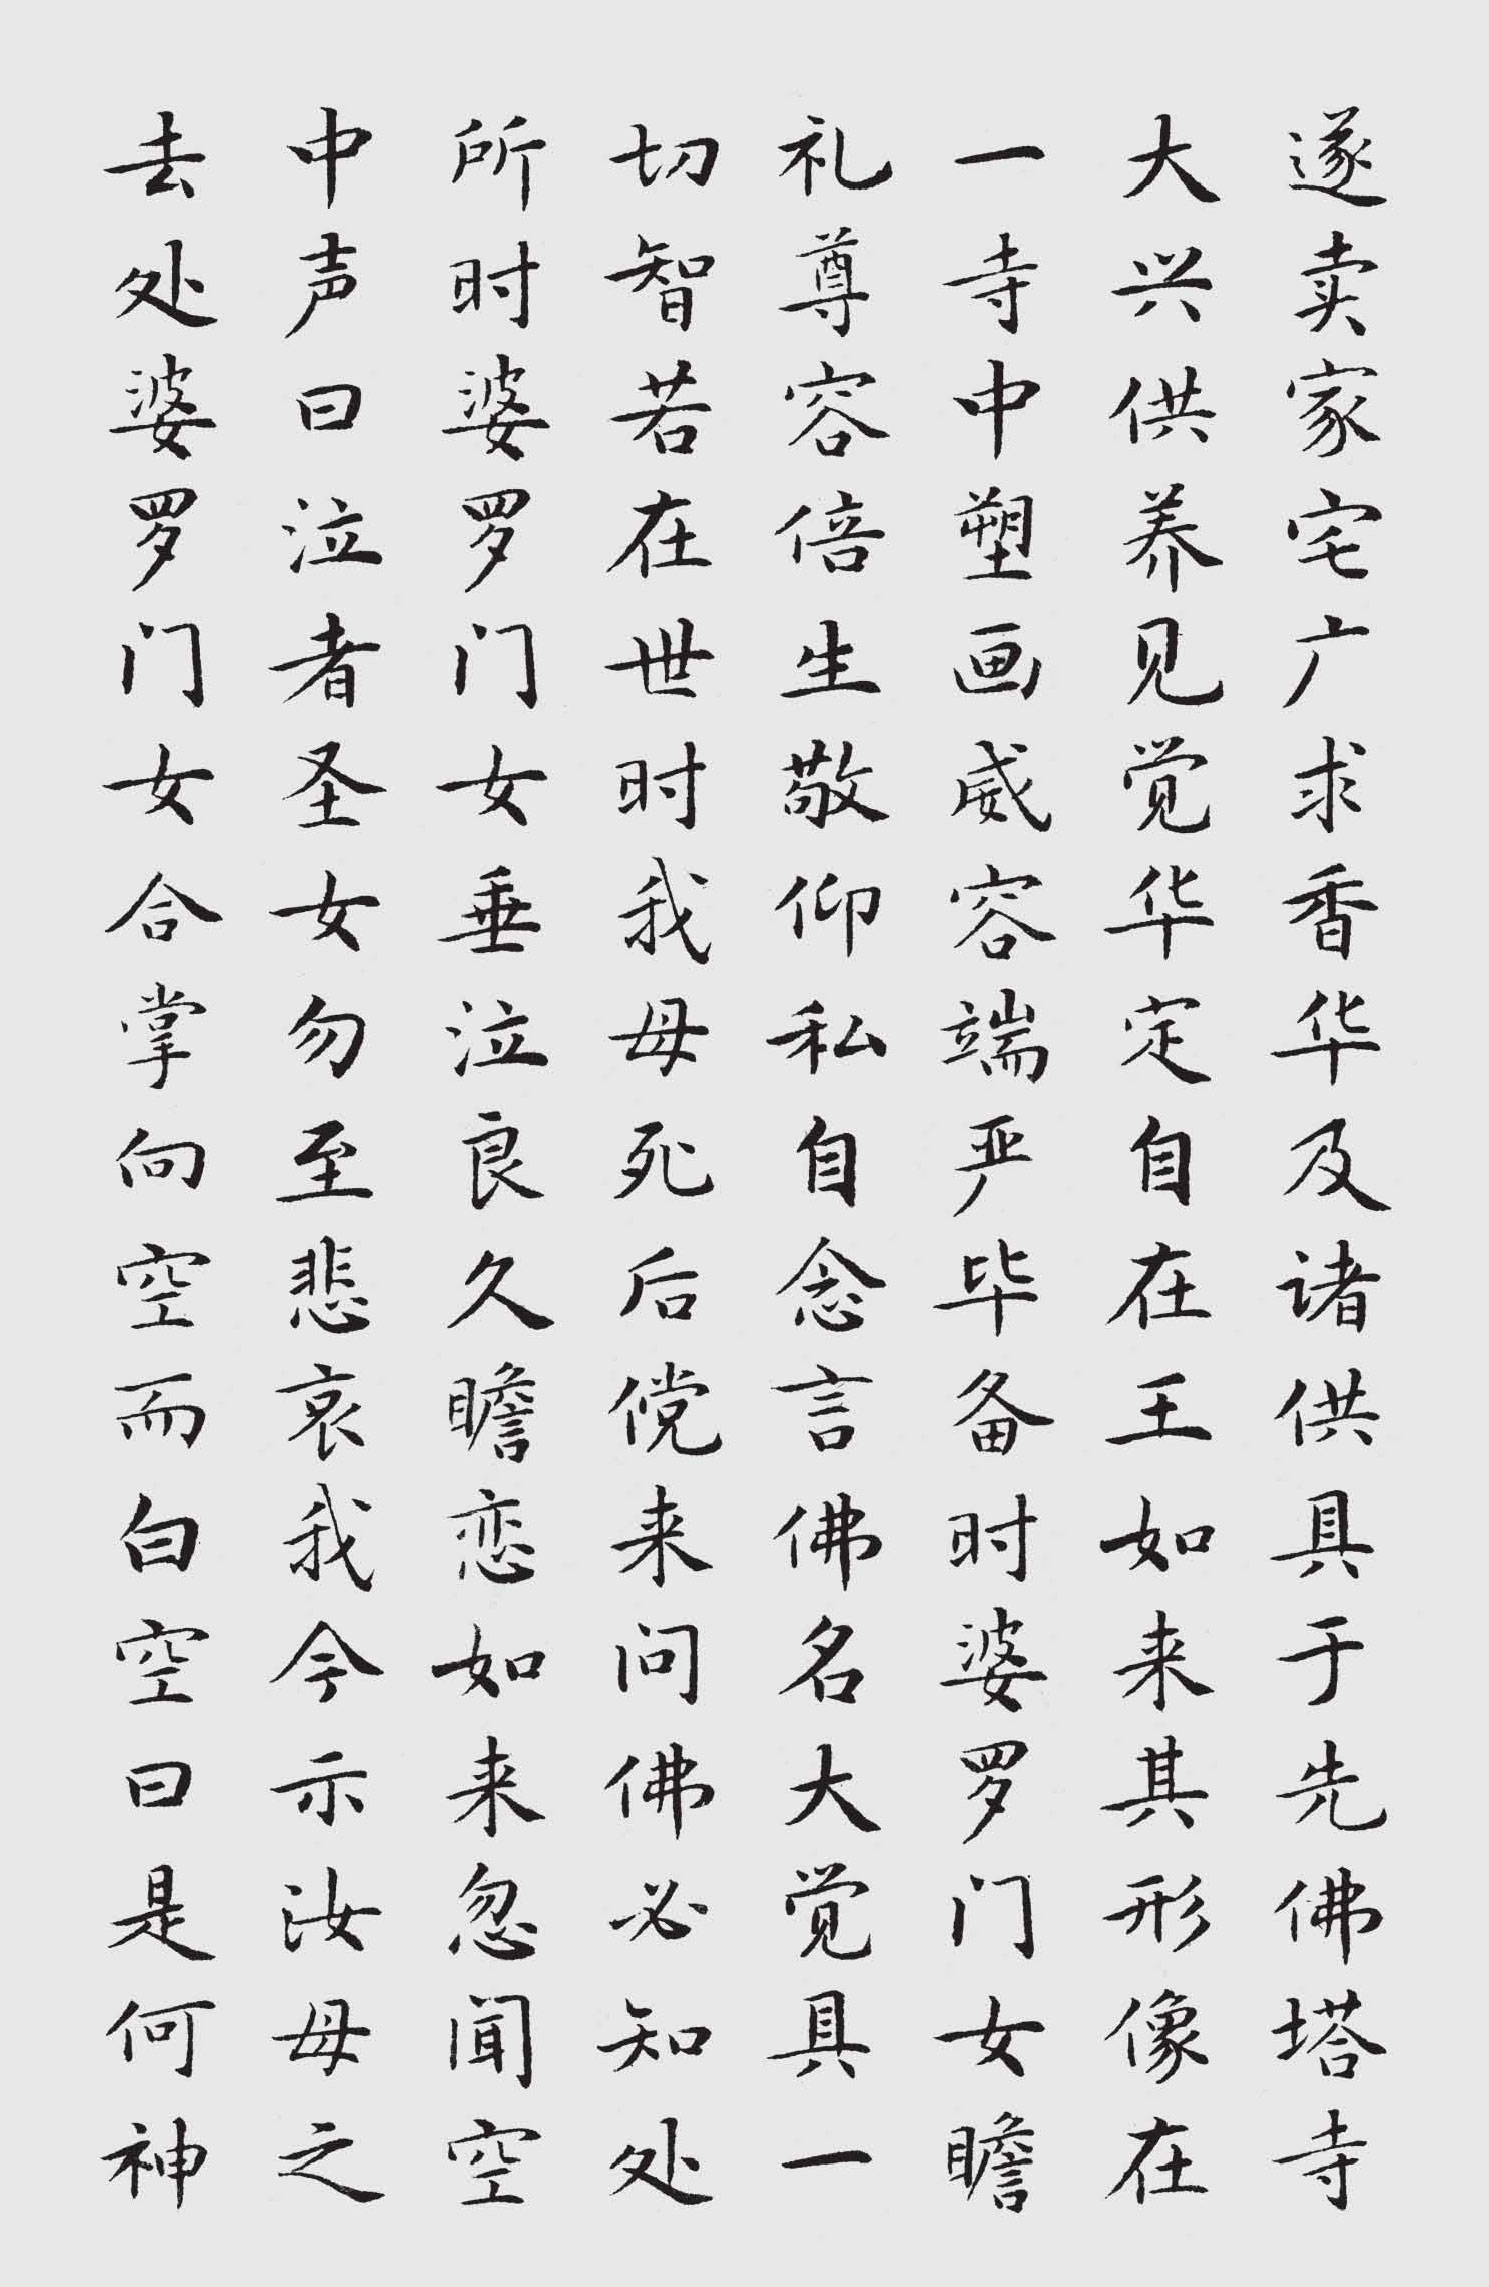 遂卖家宅广求香华及诸供具于先佛塔寺
大兴供养见觉华定自在王如来其形像在
一寺中塑画威容端严毕备时婆罗门女瞻
礼尊容倍生敬仰私自念言佛名大觉具一
切智若在世时我母死后傥来问佛必知处
所时婆罗门女垂泣良久瞻恋如来忽闻空
中声曰泣者圣女勿至悲哀我今示汝母之
去处婆罗门女合掌向空而白空曰是何神